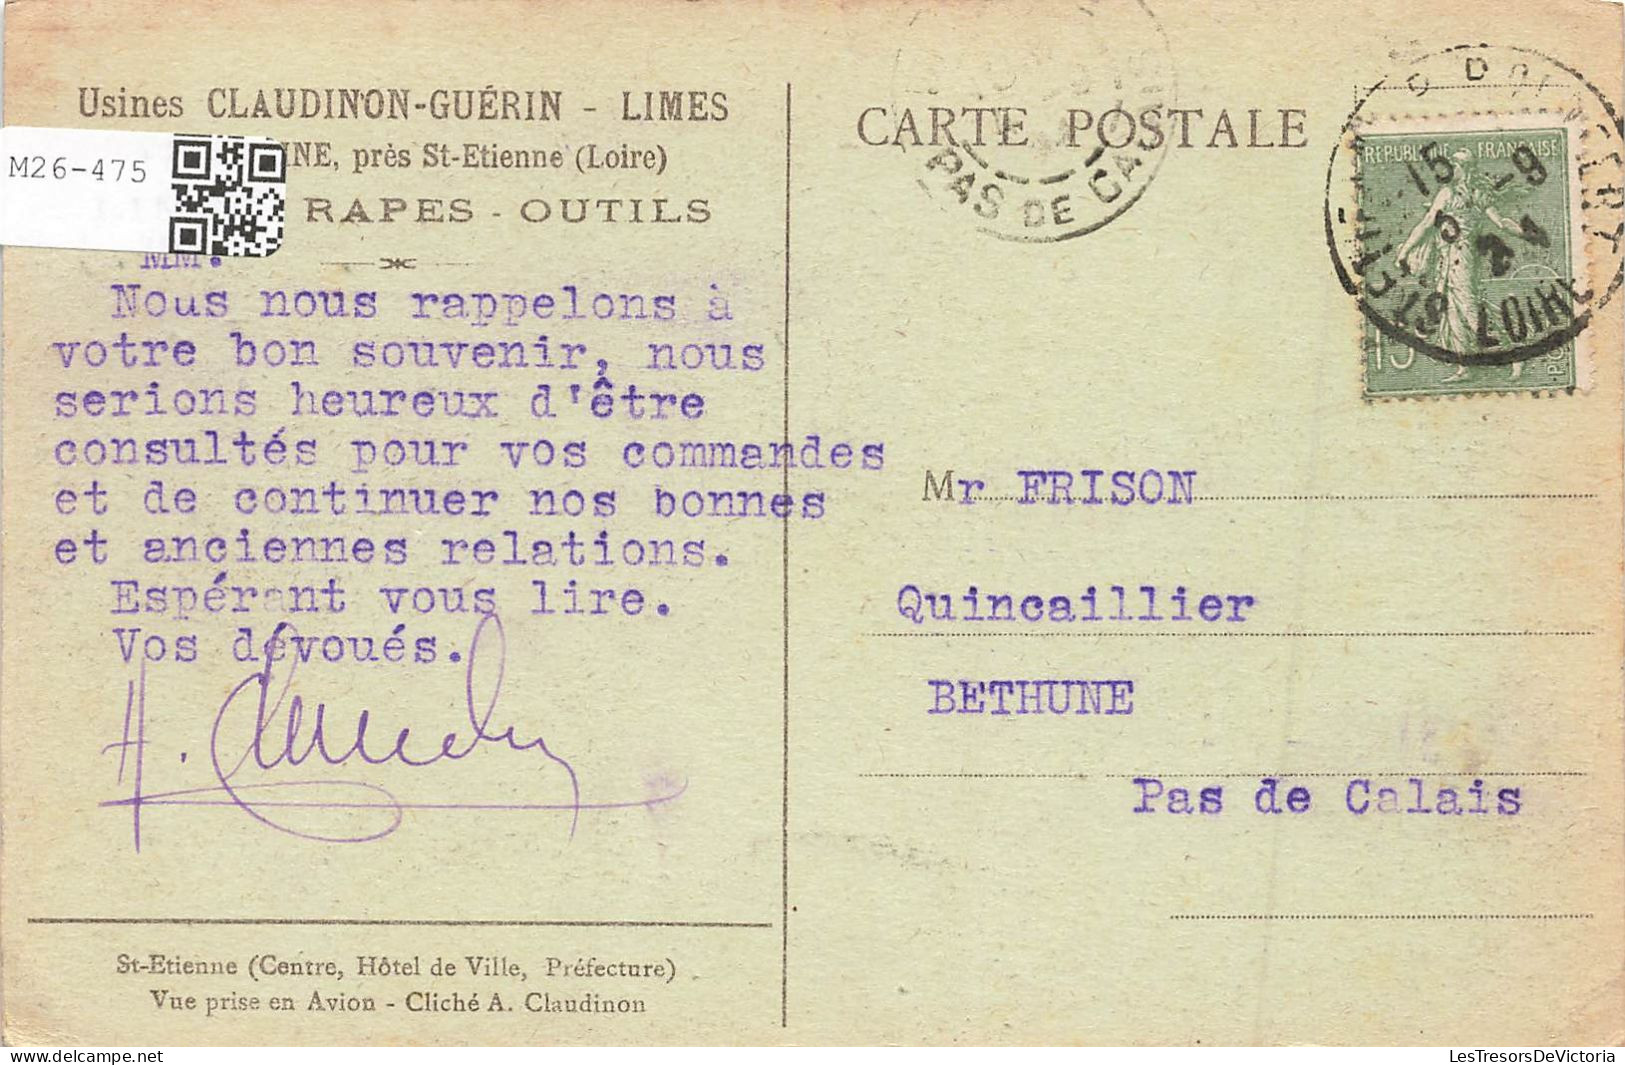 Usines CLAUDINON-GUÉRIN - LIMES
NNE, près St-Etienne (Loire)
RAPES - OUTILS
M26-475
MM.
Nous nous rappelons à
votre bon souvenir, nous
serions heureux d'être
consultés pour vos commandes
et de continuer nos bonnes
et anciennes relations.
Espérant vous lire.
Vos dévoués.
St-Etienne (Centre, Hôtel de Ville, Préfecture)
Vue prise en Avion - Cliché A. Claudinon
CARTE POSTALE
PAS DE CALAIS
REPUBLIQUE FRANÇAISE
15
15 - 9
LOIRE
Mr FRISON
Quincaillier
BETHUNE
Pas de Calais
LesTresorsDeVictoria